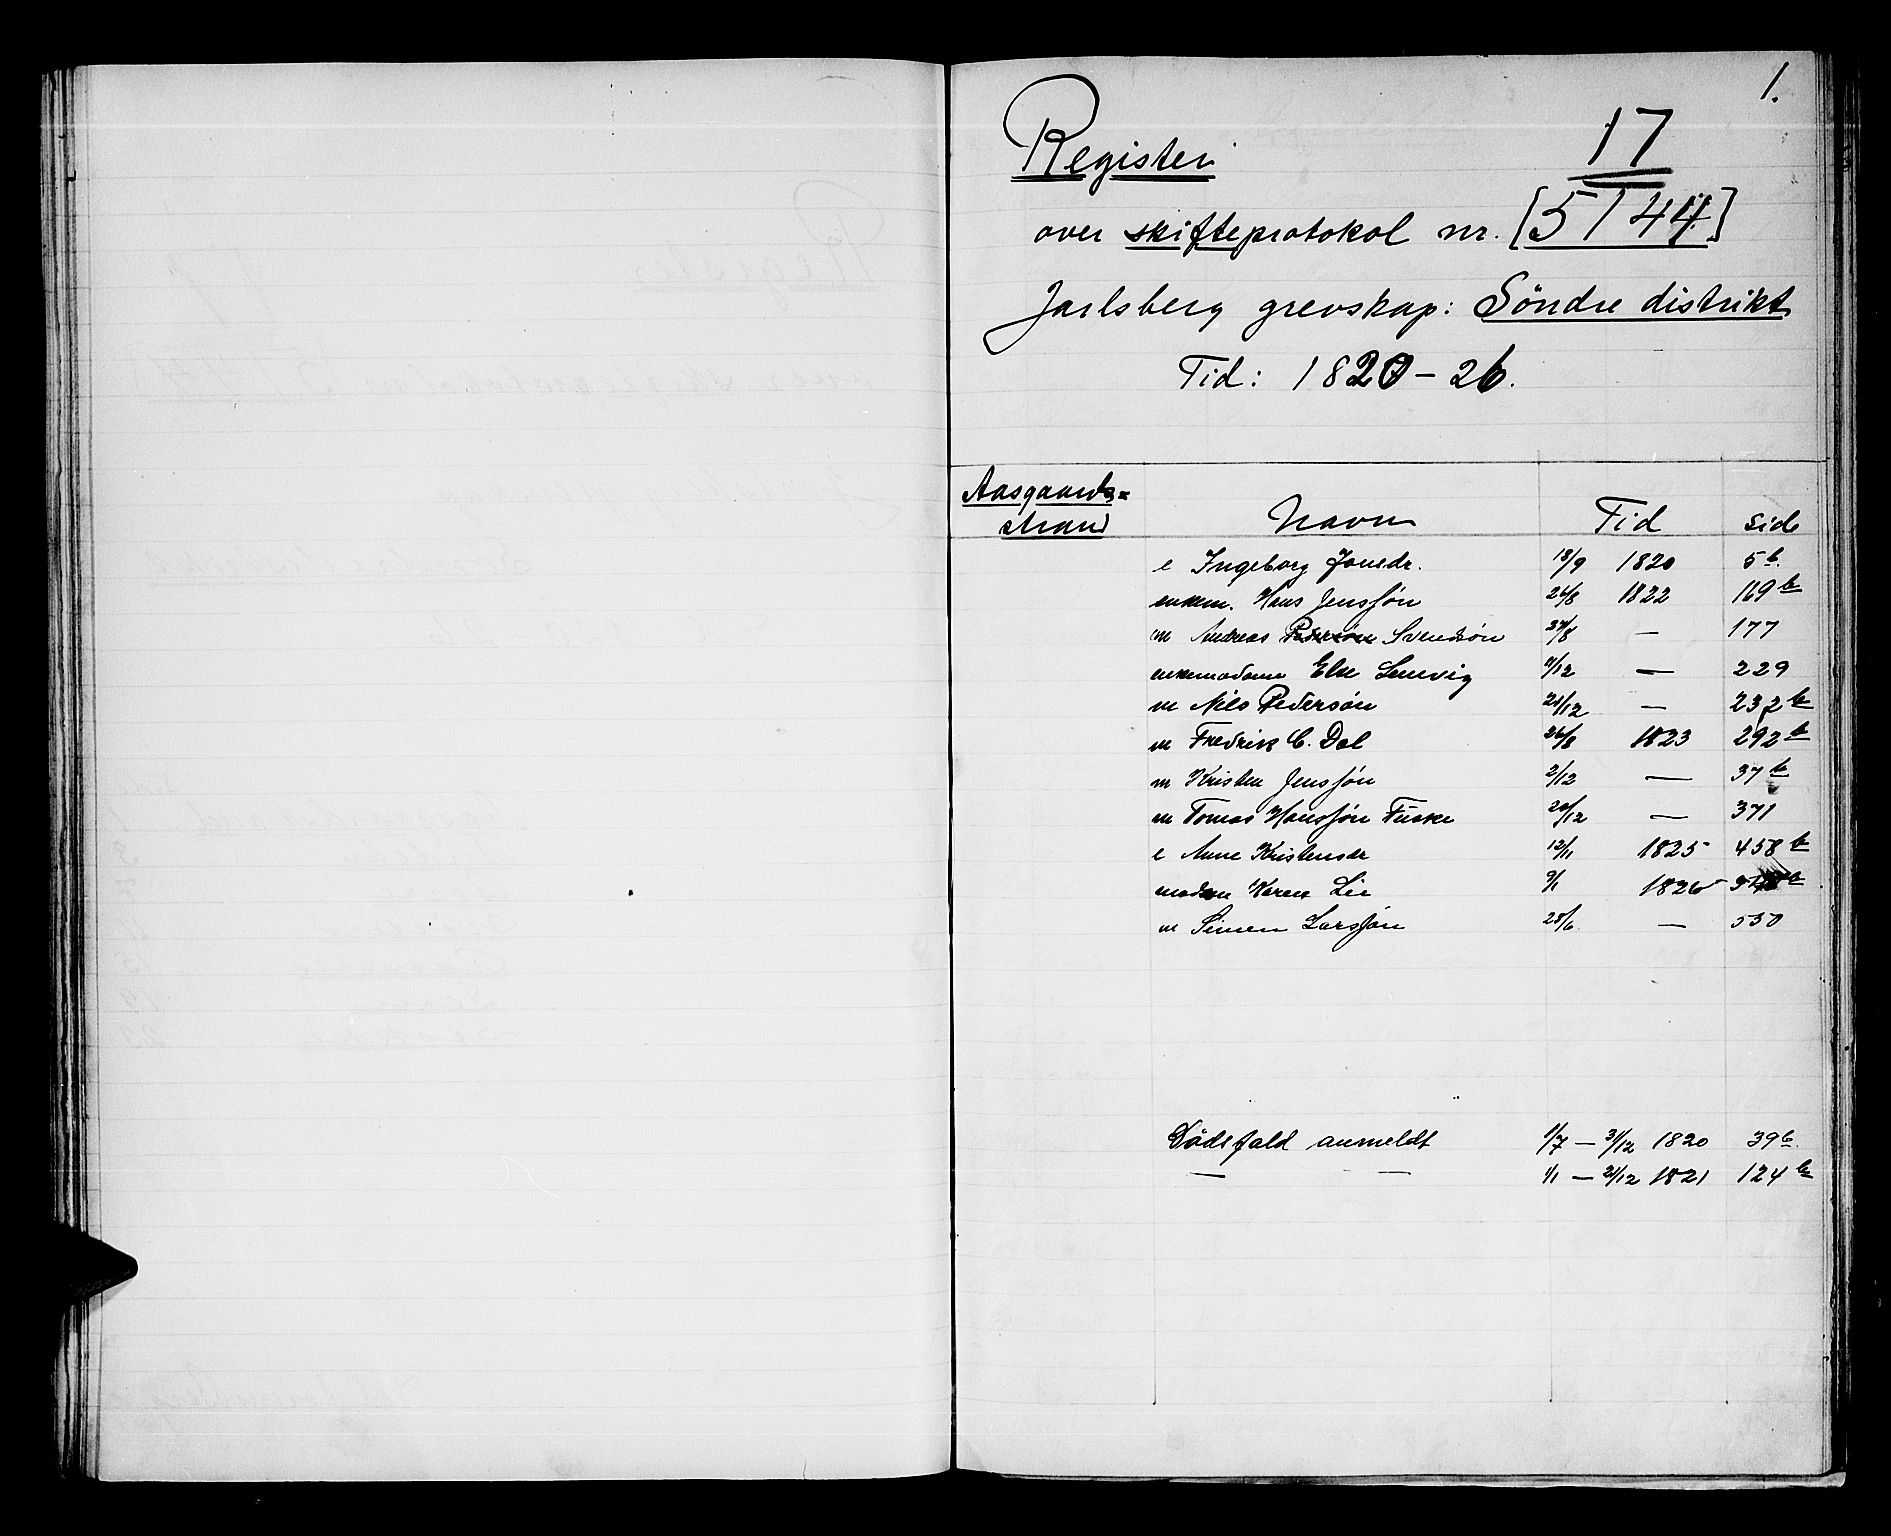 1.
Register 17
over skifteprotokol nr. [5144]
Jarlsberg grevskap: Söndre distrikt
Tid: 1820-26.
Aasgaards=
strand Navn Tid Side
e Ingeborg Jonsdr. 18/9 1820 5b.
enkem. Hans Jensson 26/8 1822 169b
m Andreas Pederson Svendsön 27/8 — 177
enkemadame Else 9/12 — 229
m Nils Pedersön 21/12 — 232b
m Fredrik C. Dal 26/8 1823 292b
m Kristen Jensson 2/12 — 37b
m Tomas Hansson Fuske 20/12 — 371
e Anne Kristensdr 12/11 1825 458b
madam Karen Lie 9/1 1826
m Simen Larsson 28/6 — 530
Dödsfald anmeldt 1/7 — 31/12 1820 39b.
— — 1/1 — 21/12 1821 124b